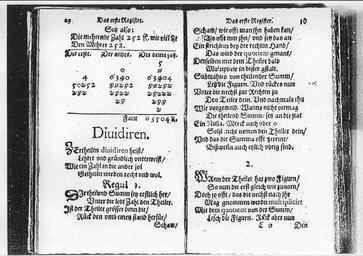 29 Das erste Register.
Setz also:
Die mehrende Zahl 252 R. wie viel
Den Mehrer 252.
Der erste. Der ander. Der
5
0 0
4 6340 63404
50252 88252 88252
282 2822 2822
28 288
2
Facit 63504
Diuidiren.
Zertheilen diuidiren heist/
Lehret und gründlich unterweist/
Wie ein Zahl in die ander sol
Getheilet werden recht und wol.
Regul 1.
Die theilend Summ sey erstlich her/
Unter die setz Zahl den Theiler.
Ist der Theiler grösser denn die/
Rück den und einen stand herfür/
Schaw/
Das erste Register. 30
Schaw/ wie offt man ihn haben kan/
Als offt nim ihn/ und setz das an
Ein strichlein bey der rechten Hand/
Das wird der quotient genant/
Denselben mit dem Theiler bald
Subtrahirs von theilender Summ/
Leschs die Figurn. Und rücks nun
Unter die nechst zur Rechten zu
Den Teiler dein. Und nachmals thu
Wie vorgemeld. Wanns nicht vermag
Die theilend Summ/ setz an die stat
Ein Nulla. Merck auch
Solst nicht nemen den Theiler dein/
Und das die Summ offt
2.
Wann der Theiler hat zwo Figurn/
So mim die erst gleich wie zuvorn/
Doch so offt/ das die nechst nach
Mag genommen werden multiplicirt
Mit dem quotient von der Summ/
Lesch die Figurn. Rück aber nun
Den